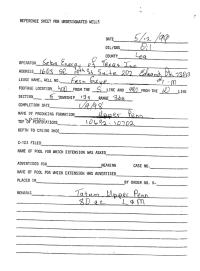 REFERENCE SHEET FOR UNDESIGNATED WELLS
DATE 5/12/98
OIL/GAS Oil
COUNTY Lea
OPERATOR Seba Energy of Texas Inc
ADDRESS 1605 SE Suite 202 Edmond, Ok 73013
LEASE NAME, WELL NO. #1 M
FOOTAGE LOCATION, FROM THE S LINE AND FROM THE W LINE
SECTION TOWNSHIP 12s RANGE 36e
COMPLETION DATE 1/9/98
NAME OF PRODUCING FORMATION Upper Penn
TOP OF PERFORATIONS 10692-10702
DEPTH TO CASING SHOE
C-123 FILED
NAME OF POOL FOR WHICH EXTENSION WAS ASKED
ADVERTISED FOR HEARING CASE NO.
NAME OF POOL FOR WHICH EXTENSION WAS ADVERTISED
PLACED IN BY ORDER NO. R-
REMARKS Tatum Upper Penn
80 ac L&M